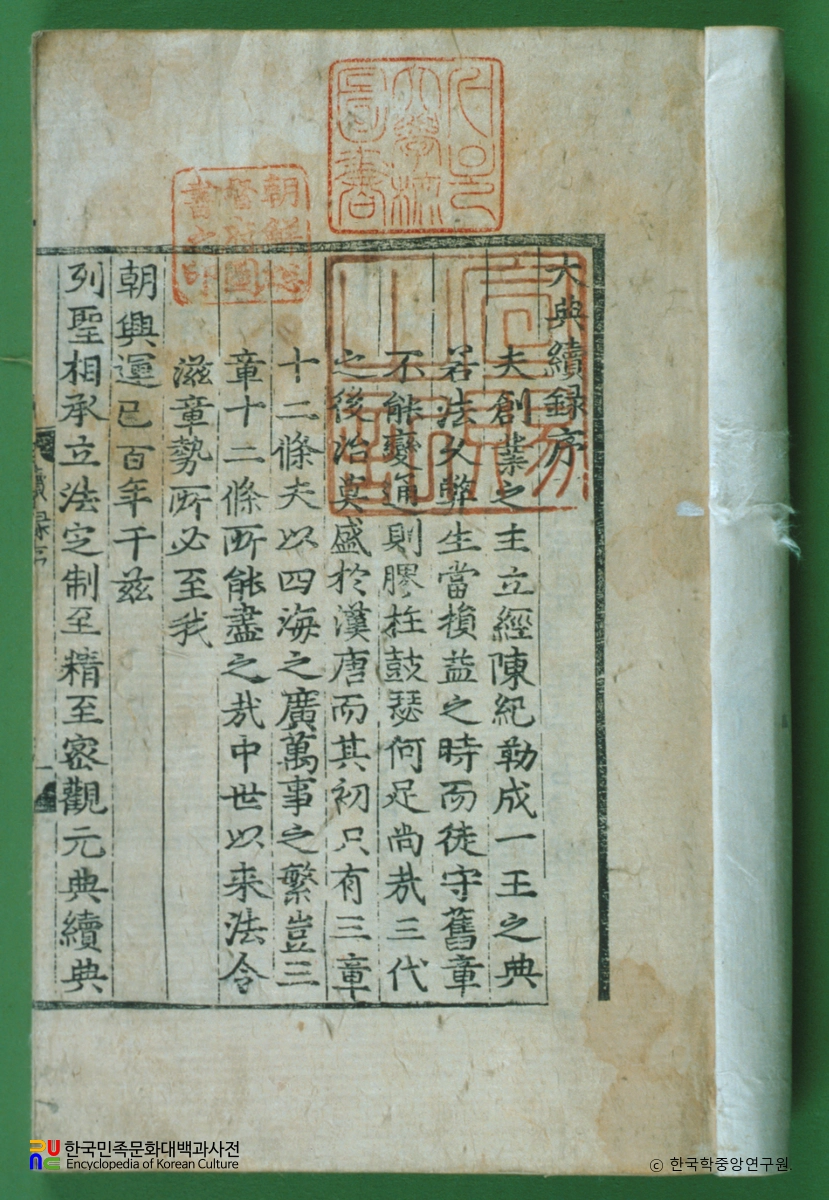 大典續錄序
夫創業之主立經陳紀勒成一王之典
若法久弊生當損益之時而徒守舊章
不能變通則膠柱鼓瑟何足尙㢤三代
之後治莫盛於漢唐而其初只有三章
十二條夫以四海之廣萬事之繁豈三
章十二條所能盡之㢤中世以来法令
滋章勢所必至我
朝興運已百年于玆
列聖相承立法定制至精至密觀元典續典
朝鮮總
督府圖
書之印
한국민족문화대백과사전
Encyclopedia of Korean Culture
© 한국학중앙연구원